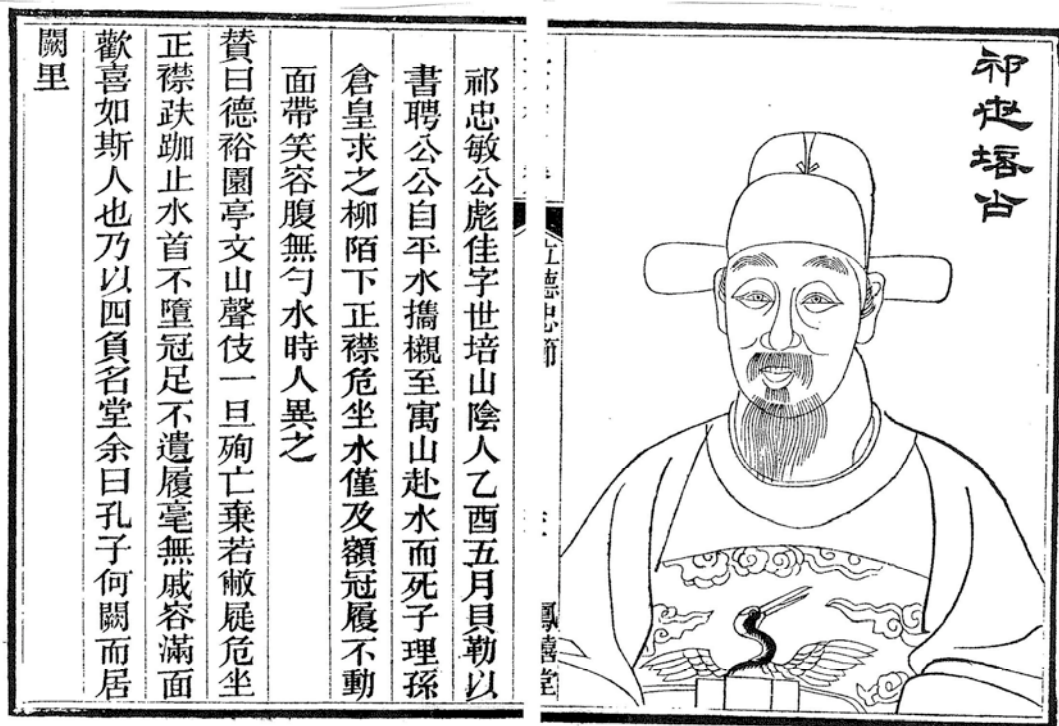 祁世培公
祁忠敏公彪佳字世培山陰人乙酉五月貝勒以
書聘公公自平水攜櫬至寓山赴水而死子理孫
倉皇求之柳陌下正襟危坐水僅及額冠履不動
面帶笑容腹無勺水時人異之
贊曰德裕園亭文山聲伎一旦殉亡棄若敝屣危坐
正襟趺跏止水首不墮冠足不遺履毫無戚容滿面
歡喜如斯人也乃以四負名堂余曰孔子何闕而居
闕里
立德忠節
鳳嬉堂